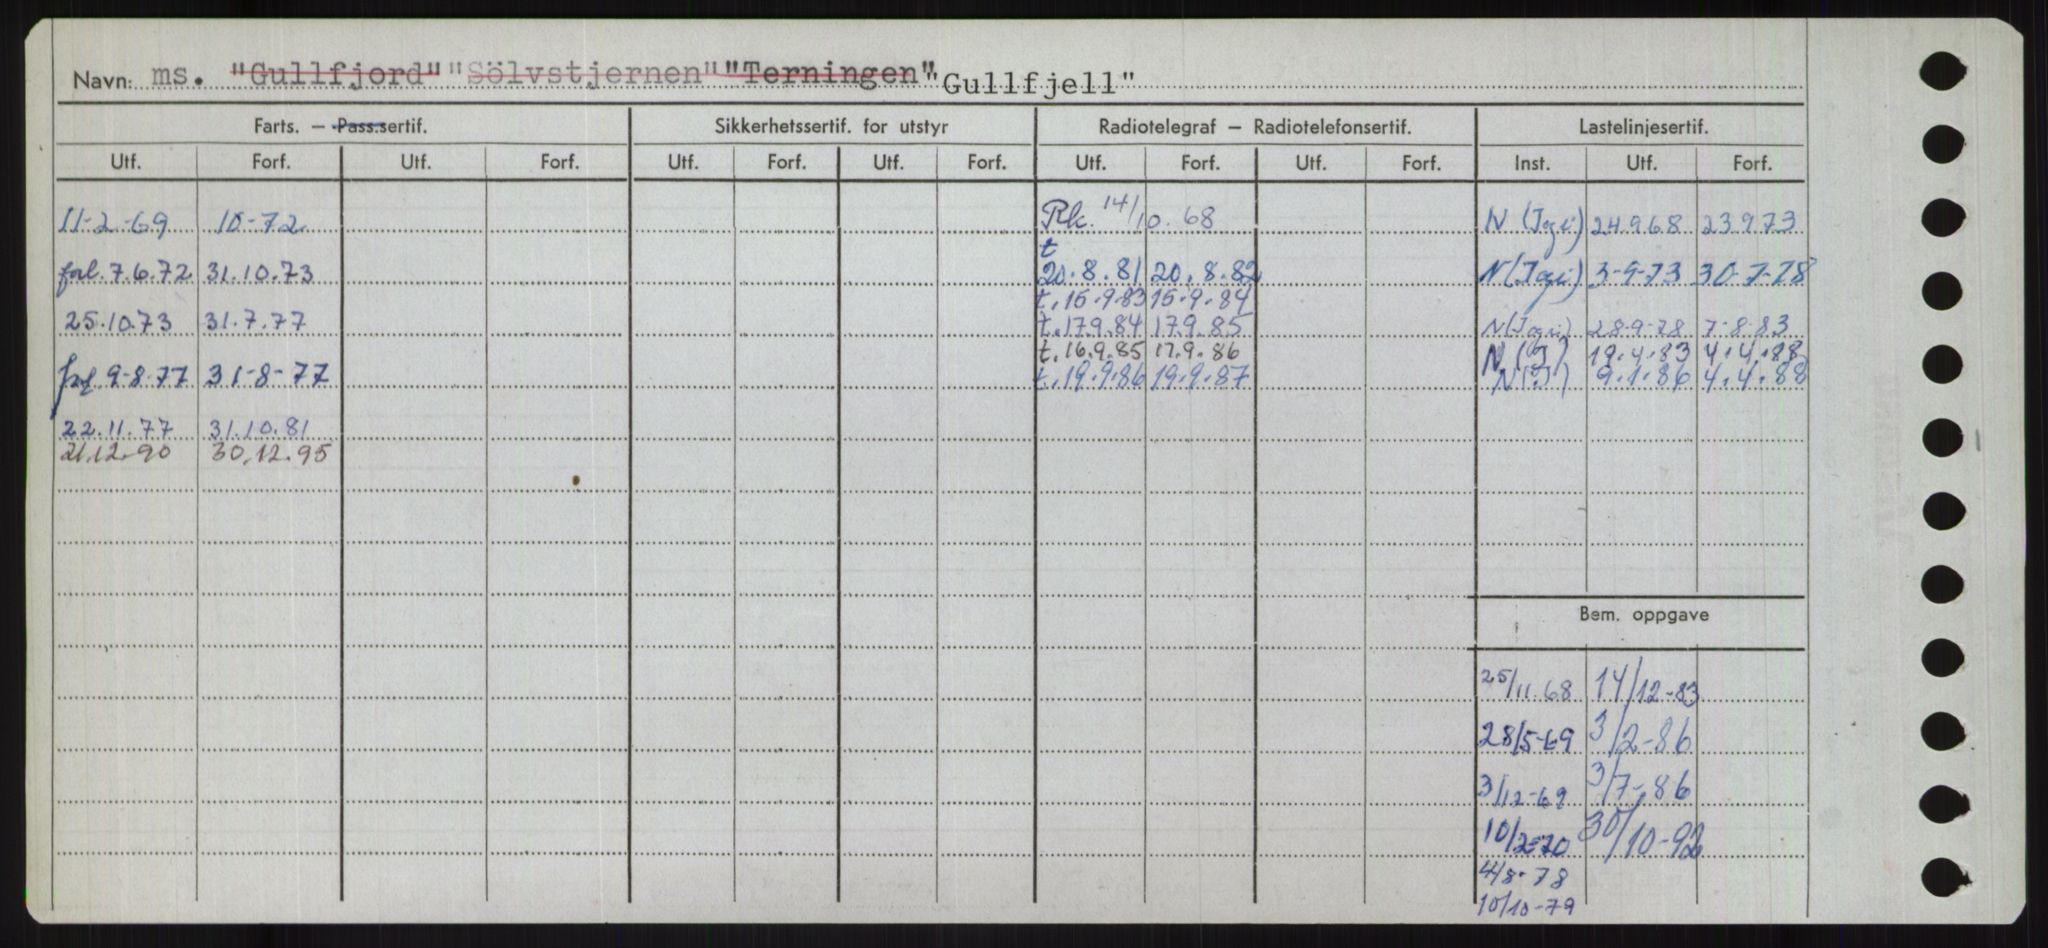 Navn: ms. "Gullfjord" "Sölvstjernen" "Terningen" "Gullfjell"
Farts. – Pass.sertif. Sikkerhetssertif. for utstyr Radiotelegraf – Radiotelefonsertif. Lastelinjesertif.
Utf. Forf. Utf. Forf. Utf. Forf. Utf. Forf. Utf. Forf. Utf. Forf. Inst. Utf. Forf.
11-2-69 10-72 Rk. 14/10.68 N 24.9.68 23.9.73
t
7.6.72 31.10.73 20.8.81 20.8.82 N 3-9-73 30-7-78
t. 15.9.83 15.9.84
25.10.73 31.7.77 t. 17.9.84 17.9.85 N 28-9-78 7-8-83
t. 16.9.85 17.9.86 N (I) 19.4.83 4.4.88
9-8-77 31-8-77 t. 19.9.86 19.9.87 N(I) 9.1.86 4.4.88
22.11.77 31.10.81
21.12.90 30.12.95
Bem. oppgave
25/11.68 14/12-83
28/5-69 3/2-86
3/12-69 3/7-86
10/2-70 30/10-92
4/8-78
10/10-79